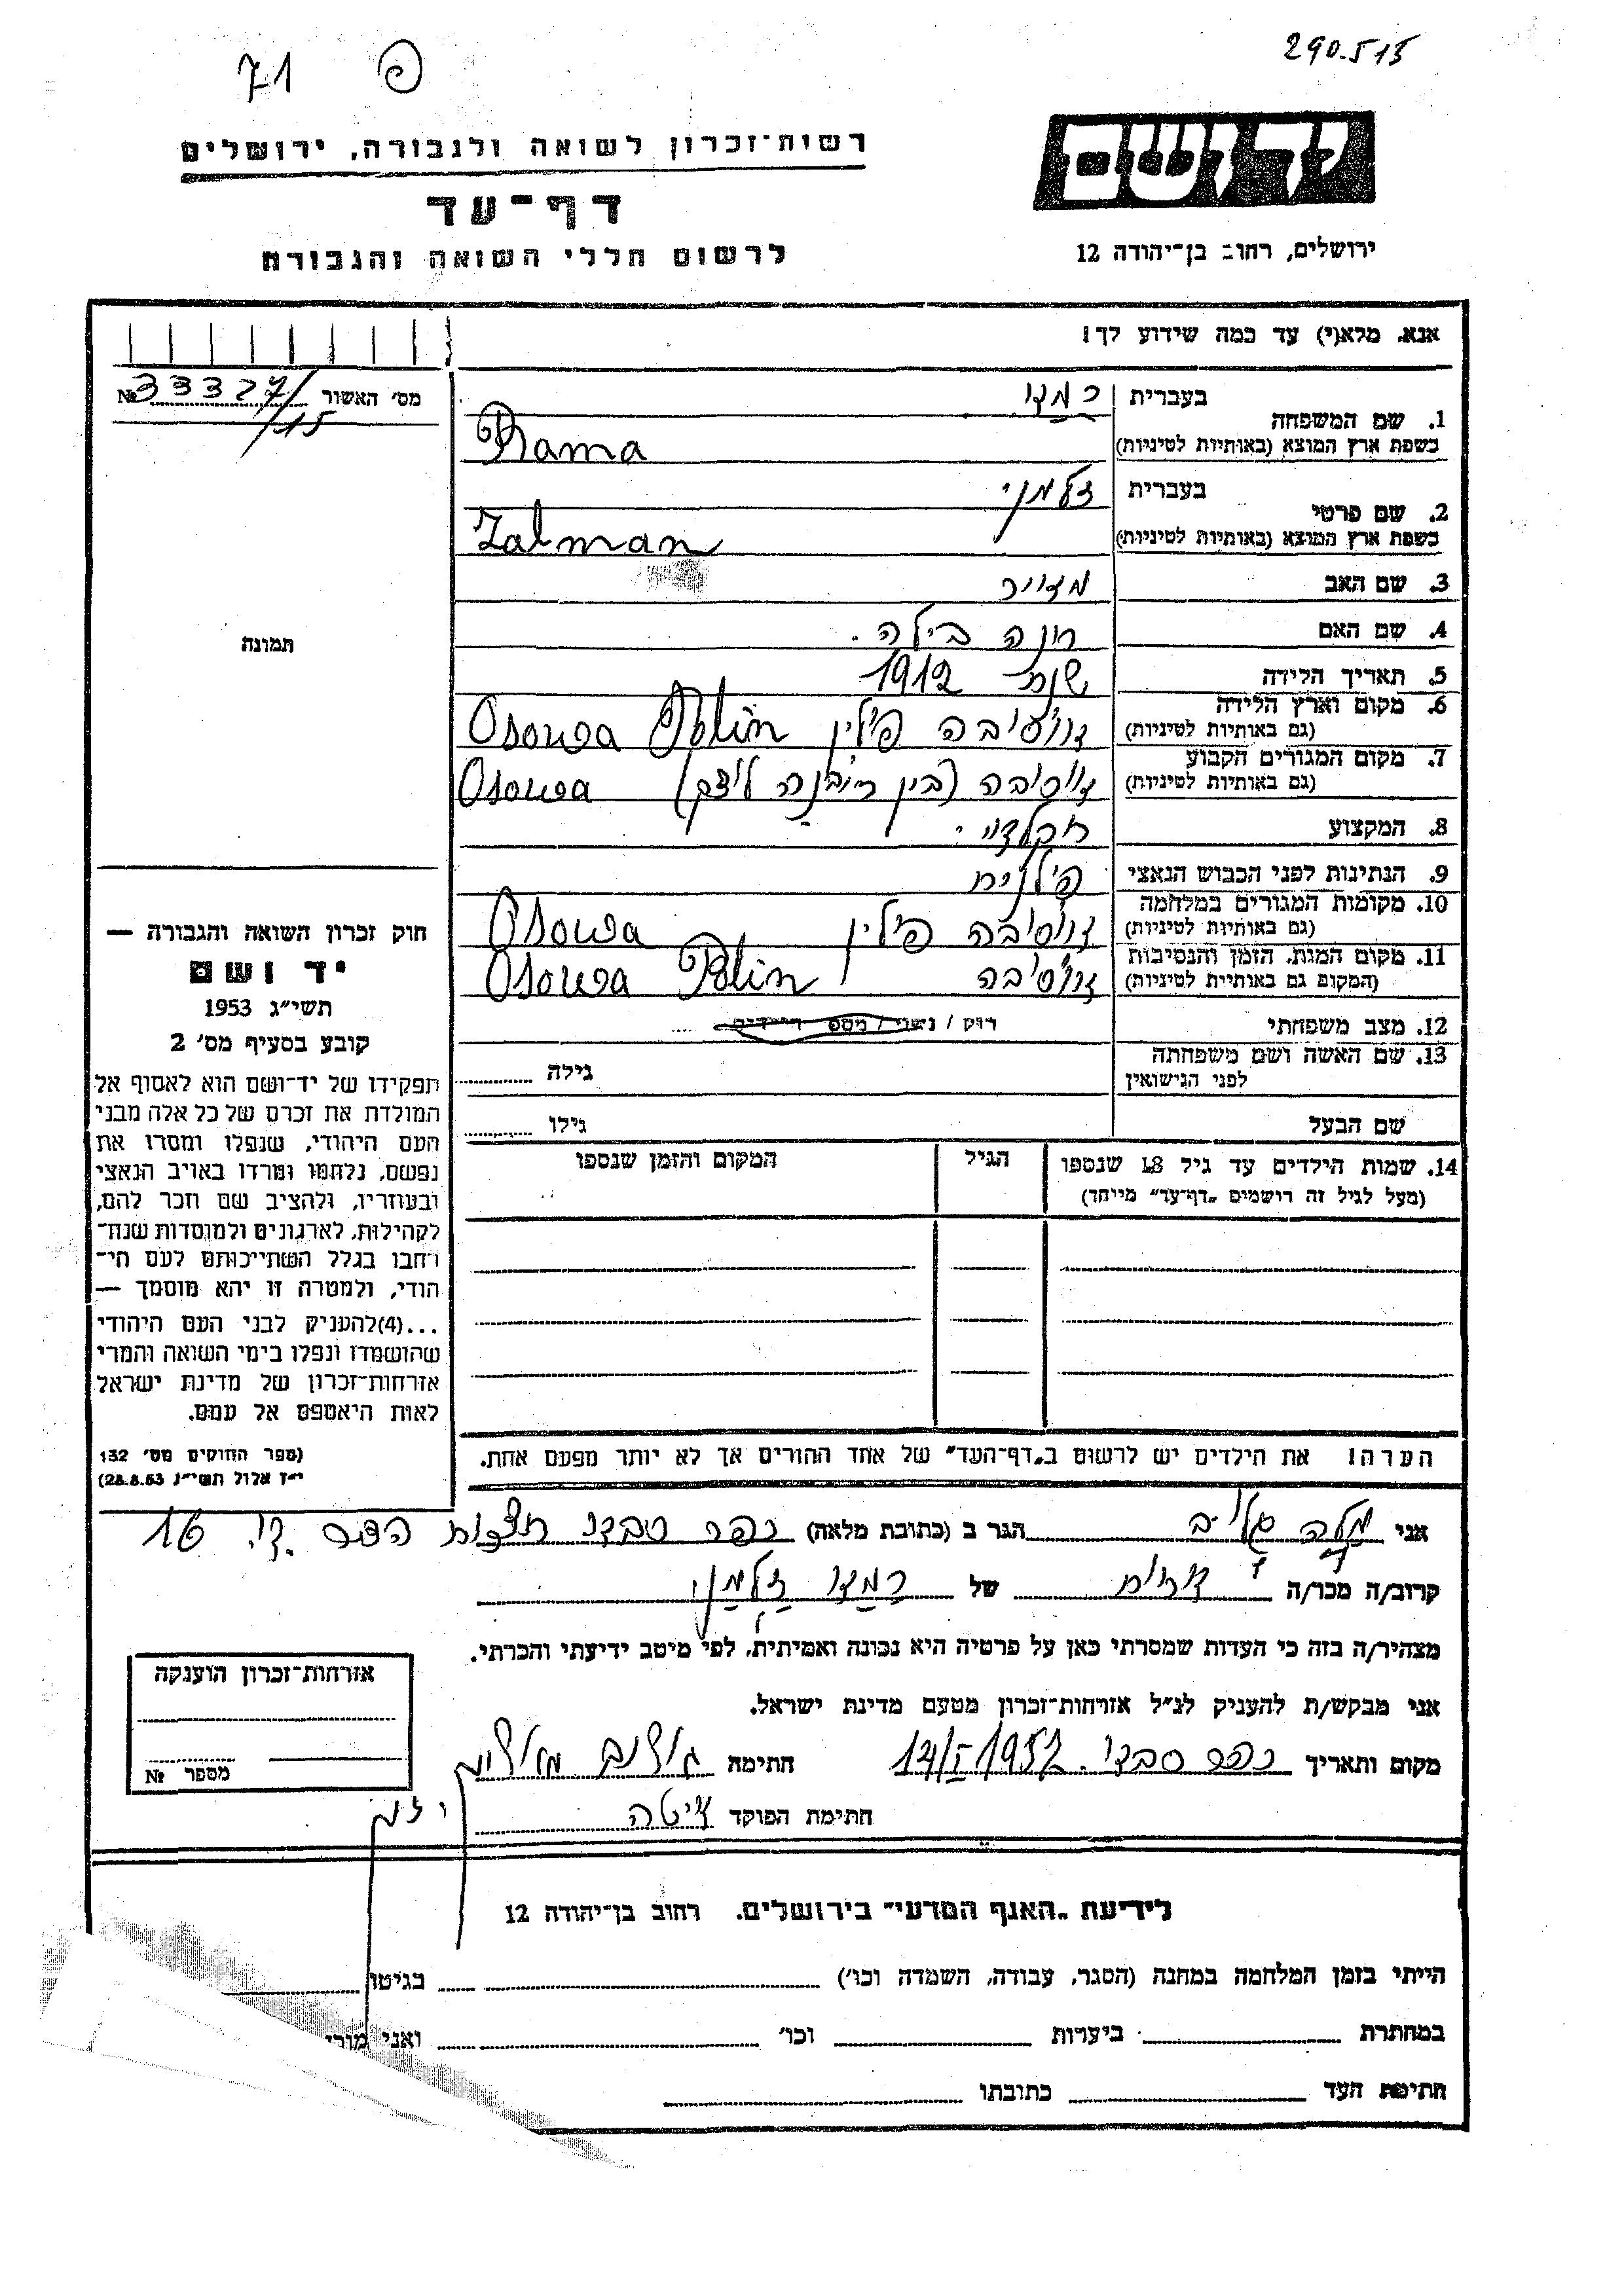 290.515
71 פ
יד ושם
רשות־זכרון לשואה ולגבורה, ירושלים
דף־עד
לרשום חללי השואה והגבורה
ירושלים, רחוב בן־יהודה 12
אנא, מלא(י) עד כמה שידוע לך!
מס׳ האשור № 33327/15
1. שם המשפחה
בעברית
בשפת ארץ המוצא (באותיות לטיניות) Rama
2. שם פרטי
בעברית זלמן
בשפת ארץ המוצא (באותיות לטיניות) Zalman
3. שם האב
תמונה
4. שם האם חנה ביילה.
5. תאריך הלידה שנת 1912
6. מקום וארץ הלידה פולין Osowa Polin
(גם באותיות לטיניות)
7. מקום המגורים הקבוע Osowa
(גם באותיות לטיניות)
8. המקצוע
9. הנתינות לפני הכבוש הנאצי פולנית
10. מקומות המגורים במלחמה פולין Osowa
(גם באותיות לטיניות)
11. מקום המות, הזמן והנסיבות Osowa Polin
(המקום גם באותיות לטיניות)
12. מצב משפחתי רוק / נשוי / מספר הילדים
13. שם האשה ושם משפחתה
לפני הנישואין
גילה
שם הבעל
גילו
14. שמות הילדים עד גיל 18 שנספו
(מעל לגיל זה רושמים „דף־עד״ מיוחד)
הגיל
המקום והזמן שנספו
הערה! את הילדים יש לרשום ב„דף־העד״ של אחד ההורים אך לא יותר מפעם אחת.
חוק זכרון השואה והגבורה —
יד ושם
תשי״ג 1953
קובע בסעיף מס׳ 2
תפקידו של יד־ושם הוא לאסוף אל
המולדת את זכרם של כל אלה מבני
העם היהודי, שנפלו ומסרו את
נפשם, נלחמו ומרדו באויב הנאצי
ובעוזריו, ולהציב שם וזכר להם,
לקהילות, לארגונים ולמוסדות שנח־
רבו בגלל השתייכותם לעם הי־
הודי, ולמטרה זו יהא מוסמך —
...(4)להעניק לבני העם היהודי
שהושמדו ונפלו בימי השואה והמרי
אזרחות־זכרון של מדינת ישראל
לאות היאספם אל עמם.
(ספר החוקים מס׳ 132
י״ז אלול תשי״ג 28.8.53)
אני הגר ב (כתובת מלאה) כפר סבא 16
קרוב/ה מכר/ה של זלמן
מצהיר/ה בזה כי העדות שמסרתי כאן על פרטיה היא נכונה ואמיתית, לפי מיטב ידיעתי והכרתי.
אני מבקש/ת להעניק לנ״ל אזרחות־זכרון מטעם מדינת ישראל.
מקום ותאריך כפר סבא. 14/I 1957 חתימה
חתימת הפוקד
אזרחות־זכרון הוענקה
מספר №
לידיעת „האגף המדעי״ בירושלים, רחוב בן־יהודה 12
הייתי בזמן המלחמה במחנה (הסגר, עבודה, השמדה וכו׳) בגיטו
במחתרת ביערות וכו׳ ואני מורי
חתימת העד כתובתו